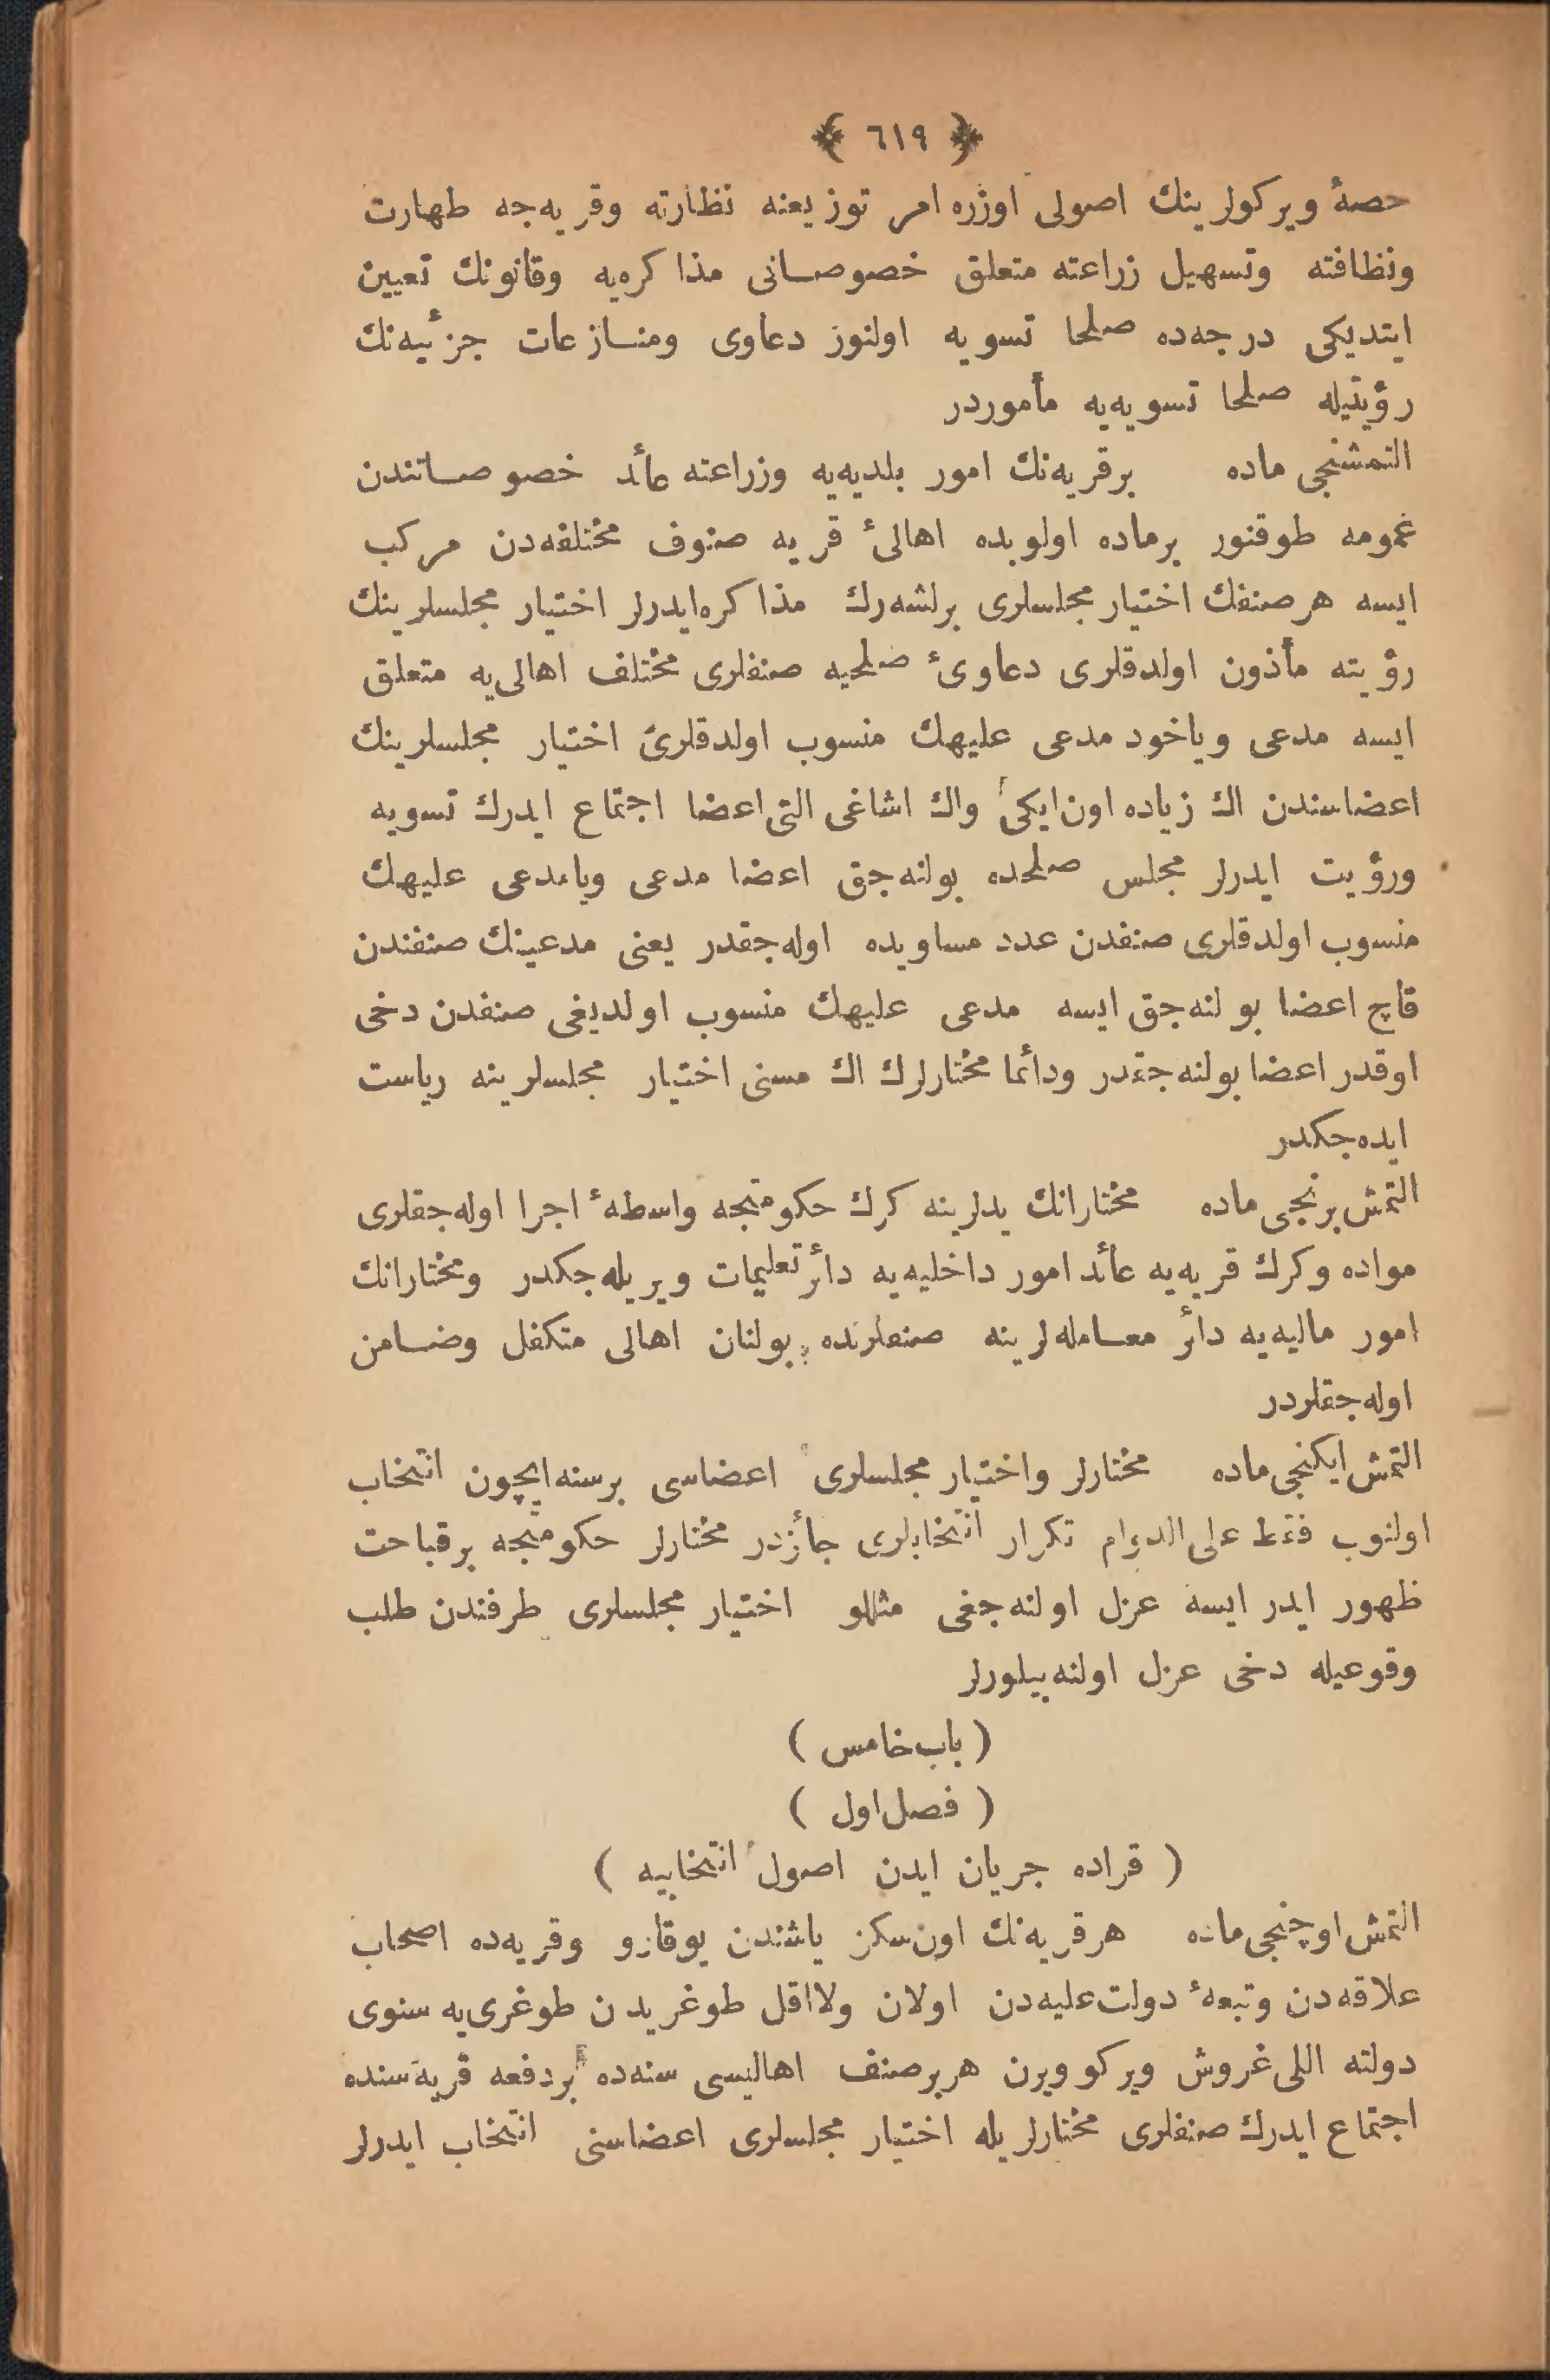 ﴿ ٦١٩ ﴾
حصهٔ ويركولرينك اصولى اوزره امر توزيعنه نظارته وقريه‌جه طهارت
ونظافته وتسهيل زراعته متعلق خصوصاتى مذاكره‌يه وقانونك تعيين
ايتديكى درجه‌ده صلحا تسويه اولنور دعاوى ومنازعات جزئيه‌نك
رؤيتيله صلحا تسويه‌يه مأموردر
التمشنجى ماده برقريه‌نك امور بلديه‌يه وزراعته عائد خصوصاتندن
عمومه طوقنور برماده اولوبده اهالئ قريه صنوف مختلفه‌دن مركب
ايسه هر صنفك اختيار مجلسلرى برلشه‌رك مذاكره ايدرلر اختيار مجلسلرينك
رؤيته مأذون اولدقلرى دعاوئ صلحيه صنفلرى مختلف اهالى‌يه متعلق
ايسه مدعى وياخود مدعى عليهك منسوب اولدقلرى اختيار مجلسلرينك
اعضاسندن اك زياده اون ايكى واك اشاغى التى اعضا اجتماع ايدرك تسويه
ورؤيت ايدرلر مجلس صلحده بولنه‌جق اعضا مدعى ويامدعى عليهك
منسوب اولدقلرى صنفدن عدد مساويده اوله‌جقدر يعنى مدعينك صنفندن
قاچ اعضا بولنه‌جق ايسه مدعى عليهك منسوب اولديغى صنفدن دخى
اوقدر اعضا بولنه‌جقدر ودائما مختارلرك اك مسنى اختيار مجلسلرينه رياست
ايده‌جكدر
التمش برنجى ماده مختارانك يدلرينه كرك حكومتجه واسطهٔ اجرا اوله‌جقلرى
مواده وكرك قريه‌يه عائد امور داخليه‌يه دائر تعليمات ويريله‌جكدر ومختارانك
امور ماليه‌يه دائر معامله‌لرينه صنفلرنده بولنان اهالى متكفل وضامن
اوله‌جقلردر
التمش ايكنجى ماده مختارلر واختيار مجلسلرى اعضاسى برسنه ايچون انتخاب
اولنوب فقط على الدوام تكرار انتخابلرى جائزدر مختارلر حكومتجه برقباحت
ظهور ايدر ايسه عزل اولنه‌جغى مثللو اختيار مجلسلرى طرفندن طلب
وقوعيله دخى عزل اولنه‌بيلورلر
( باب خامس )
( فصل اول )
( قراده جريان ايدن اصول انتخابيه )
التمش اوچنجى ماده هرقريه‌نك اون سكز ياشندن يوقارو وقريه‌ده اصحاب
علاقه‌دن وتبعهٔ دولت عليه‌دن اولان ولااقل طوغريدن طوغرى‌يه سنوى
دولته اللى غروش ويركو ويرن هربرصنف اهاليسى سنه‌ده بردفعه قريه‌سنده
اجتماع ايدرك صنفلرى مختارلريله اختيار مجلسلرى اعضاسنى انتخاب ايدرلر